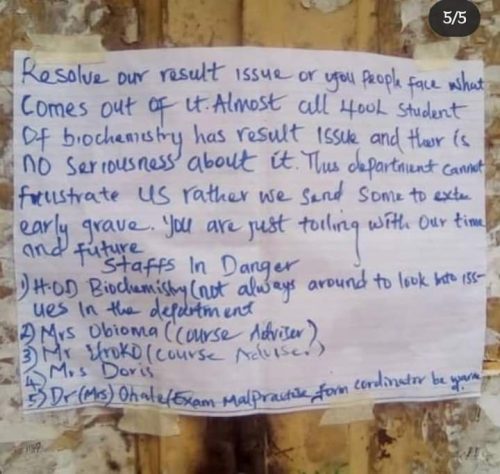 5/5
Resolve our result issue or you people face what
Comes out of it. Almost all 400L student
Of biochemistry has result issue and ther is
no seriousness about it. This department cannot
frustrate us rather we send some to
early grave. You are just toiling with our time
and future
Staffs In Danger
1) H.OD Biochemistry (not always around to look into iss-
ues in the department
2) Mrs Obioma (course Adviser)
3) Mr (course Adviser)
4) Mrs Doris
5) Dr (Mrs) Ohale (Exam Malpractise form cordinator be